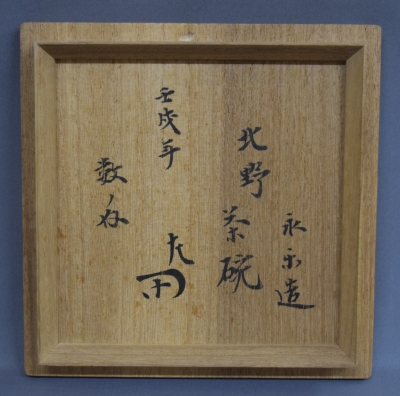 永楽造
北野茶碗
壬戌年
数ノ
左